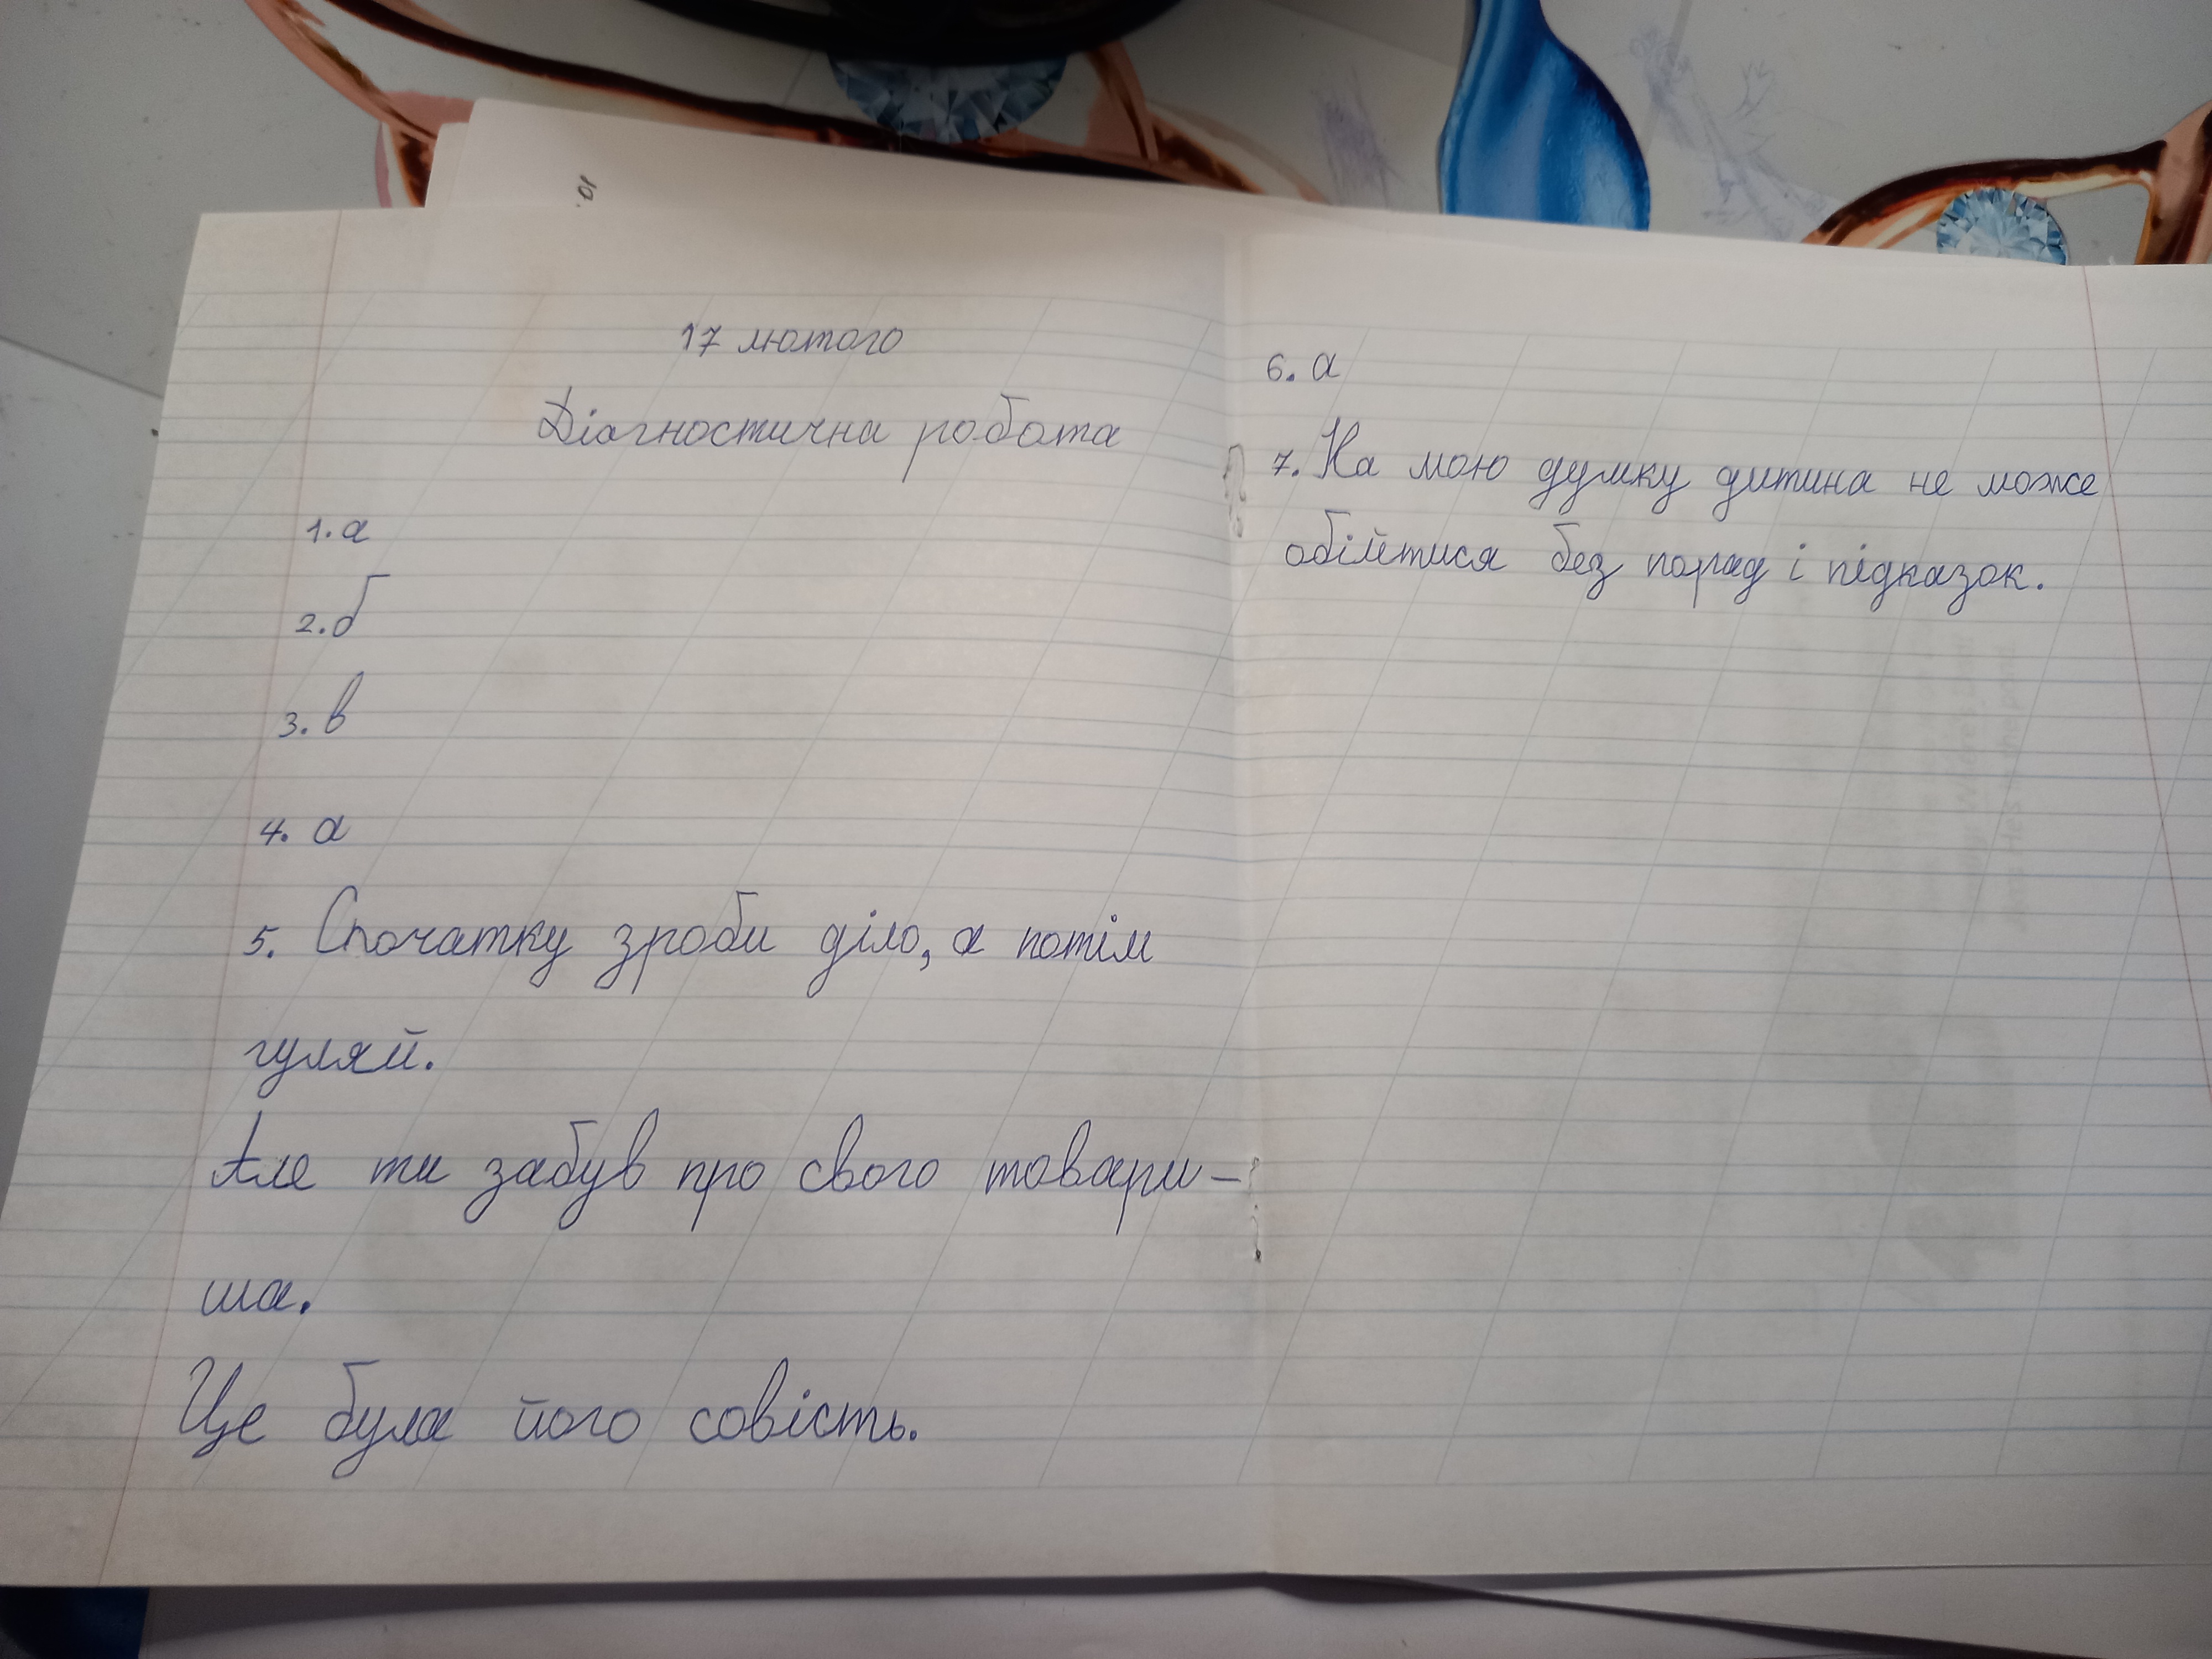 10.
17 лютого
Діагностична робота
1. а
2. б
3. в
4. а
5. Спочатку зроби діло, а потім
гуляй.
Але ти забув про свого товари-
ша.
Це була його совість.
6. а
7. На мою думку дитина не може
обійтися без порад і підказок.